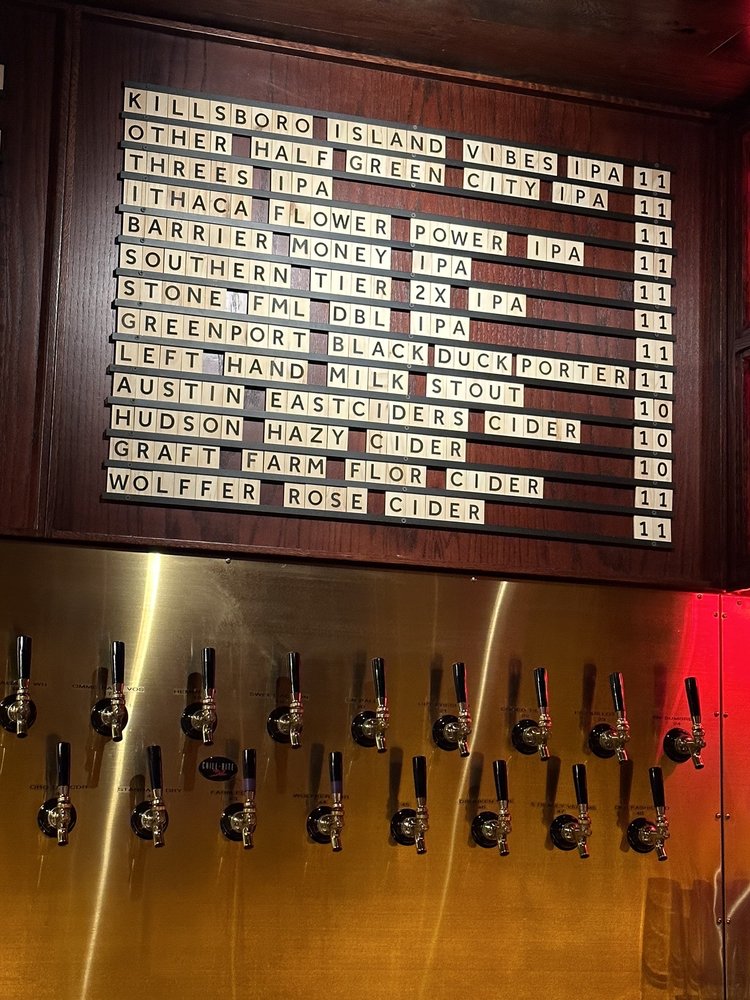 KILLSBORO ISLAND VIBES IPA 11
OTHER HALF GREEN CITY IPA 11
THREES IPA 11
ITHACA FLOWER POWER IPA 11
BARRIER MONEY IPA 11
SOUTHERN TIER 2X IPA 11
STONE FML DBL IPA 11
GREENPORT BLACK DUCK PORTER 11
LEFT HAND MILK STOUT 10
AUSTIN EASTCIDERS CIDER 10
HUDSON HAZY CIDER 10
GRAFT FARM FLOR CIDER 11
WOLFFER ROSE CIDER 11
CHILL-RITE